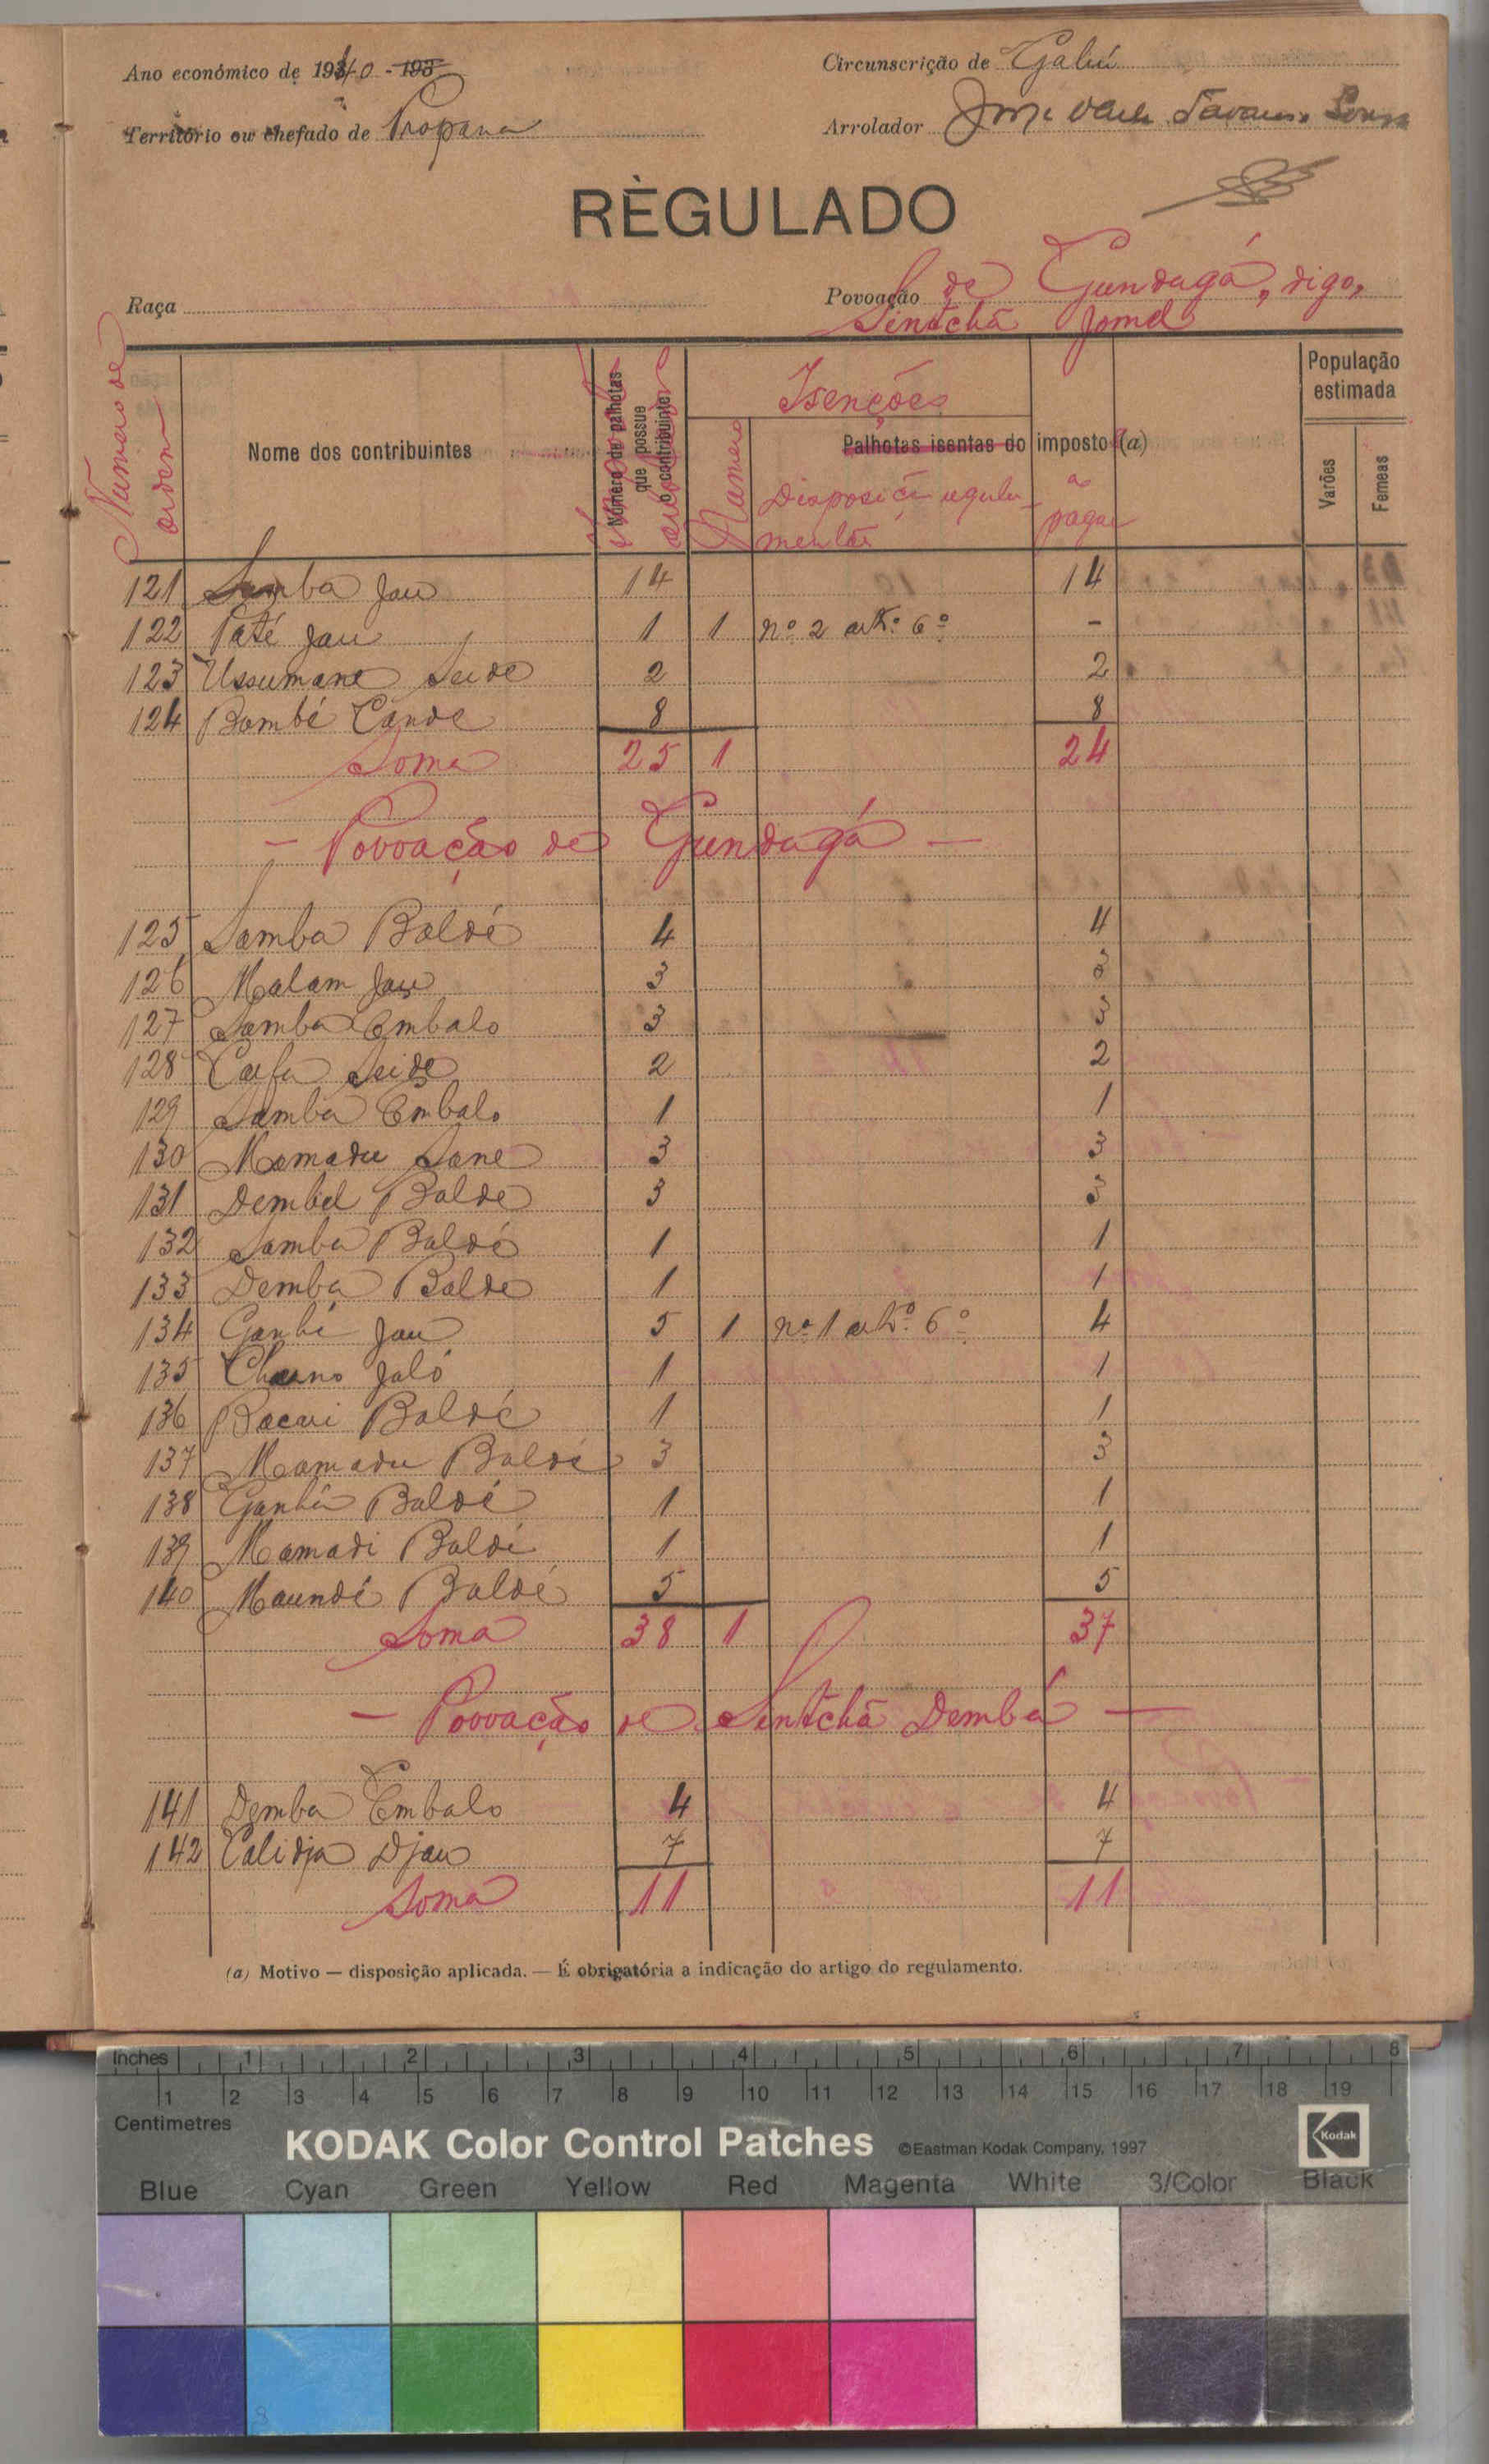 Ano económico de 1940 - 193
Circunscrição de Gabú
Território ou chefado de Propana
Arrolador
RÈGULADO
Raça
Povoação de Gundagá, digo,
Sintchã Jomel
Número de ordem
Nome dos contribuintes
Número de palhotas que possue o contribuinte
Isenções
Número
Palhotas isentas do imposto (a)
Disposição regulamentar
a pagar
População estimada
Varões
Femeas
121 Samba Jau 14 14
122 Paté Jau 1 1 nº 2 artº 6º -
123 Ussumane Seide 2 2
124 Bombé Cande 8 8
Soma 25 1 24
- Povoação de Gundagá -
125 Samba Baldé 4 4
126 Malam Jau 3 3
127 Samba Embalo 3 3
128 Seide 2 2
129 Samba Embalo 1 1
130 Mamadu Sane 3 3
131 Dembel Balde 3 3
132 Samba Baldé 1 1
133 Demba Balde 1 1
134 Jau 5 1 nº 1 artº 6º 4
135 Jaló 1 1
136 Bacari Baldé 1 1
137 Mamadu Baldé 3 3
138 Baldé 1 1
139 Mamadi Baldé 1 1
140 Maundé Baldé 5 5
Soma 38 1 37
- Povoação de Sintchã Demba -
141 Demba Embalo 4 4
142 Calidja Djau 7 7
Soma 11 11
(a) Motivo — disposição aplicada. — É obrigatória a indicação do artigo do regulamento.
Inches 1 2 3 4 5 6 7 8
1 2 3 4 5 6 7 8 9 10 11 12 13 14 15 16 17 18 19
Centimetres
KODAK Color Control Patches ©Eastman Kodak Company, 1997 Kodak
Blue Cyan Green Yellow Red Magenta White 3/Color Black